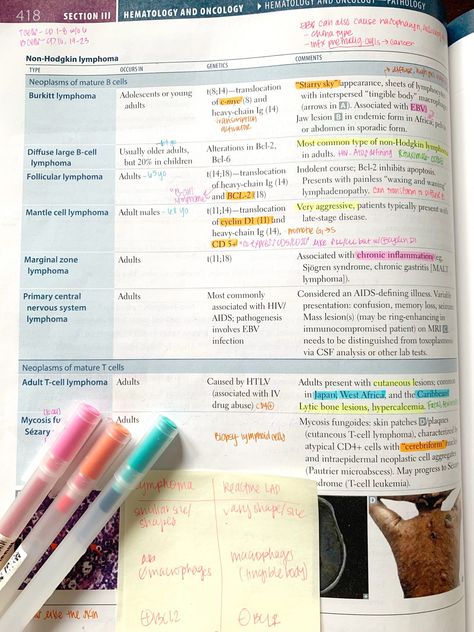 418 SECTION III HEMATOLOGY AND ONCOLOGY ▶ HEMATOLOGY AND ONCOLOGY—PATHOLOGY
EBV can also cause nasopharyn
- china type
→ cancer
Non-Hodgkin lymphoma
TYPE OCCURS IN GENETICS COMMENTS
Neoplasms of mature B cells
Burkitt lymphoma Adolescents or young t(8;14)—translocation "Starry sky" appearance, sheets of lymphocytes
adults of c-myc (8) and with interspersed "tingible body" macrophages
heavy-chain Ig (14) (arrows in A). Associated with EBV.
Jaw lesion B in endemic form in Africa; pelvis
or abdomen in sporadic form.
Diffuse large B-cell Usually older adults, Alterations in Bcl-2, Most common type of non-Hodgkin lymphoma
lymphoma but 20% in children Bcl-6 in adults. HIV-AIDS defining
Follicular lymphoma Adults t(14;18)—translocation Indolent course; Bcl-2 inhibits apoptosis.
"B-cell lymphoma" of heavy-chain Ig (14) Presents with painless "waxing and waning"
and BCL-2 (18) lymphadenopathy. can transform to diffuse
Mantle cell lymphoma Adult males t(11;14)—translocation Very aggressive, patients typically present with
of cyclin D1 (11) and late-stage disease.
heavy-chain Ig (14), - promote G₁→S
CD 5+
Marginal zone Adults t(11;18) Associated with chronic inflammation (eg,
lymphoma Sjögren syndrome, chronic gastritis [MALT
lymphoma]).
Primary central Adults Most commonly Considered an AIDS-defining illness. Variable
nervous system associated with HIV/ presentation: confusion, memory loss, seizures.
lymphoma AIDS; pathogenesis Mass lesion(s) (may be ring-enhancing in
involves EBV immunocompromised patient) on MRI C,
infection needs to be distinguished from toxoplasmosis
via CSF analysis or other lab tests.
Neoplasms of mature T cells
Adult T-cell lymphoma Adults Caused by HTLV Adults present with cutaneous lesions; common
(associated with IV in Japan, West Africa, and the Caribbean.
drug abuse) CD4+ Lytic bone lesions, hypercalcemia.
Mycosis fungoides/ Adults Biopsy-lymphoid cells Mycosis fungoides: skin patches D/plaques
Sézary (cutaneous T-cell lymphoma), characterized by
atypical CD4+ cells with "cerebriform" nuclei
and intraepidermal neoplastic cell aggregates
(Pautrier microabscess). May progress to Sézary
syndrome (T-cell leukemia).
lymphoma Reactive LAD
similar size/ vary shape/size
shapes
∅ macrophages macrophages
(tingible body)
⊕ BCL2 ⊖ BCL2
D
the skin